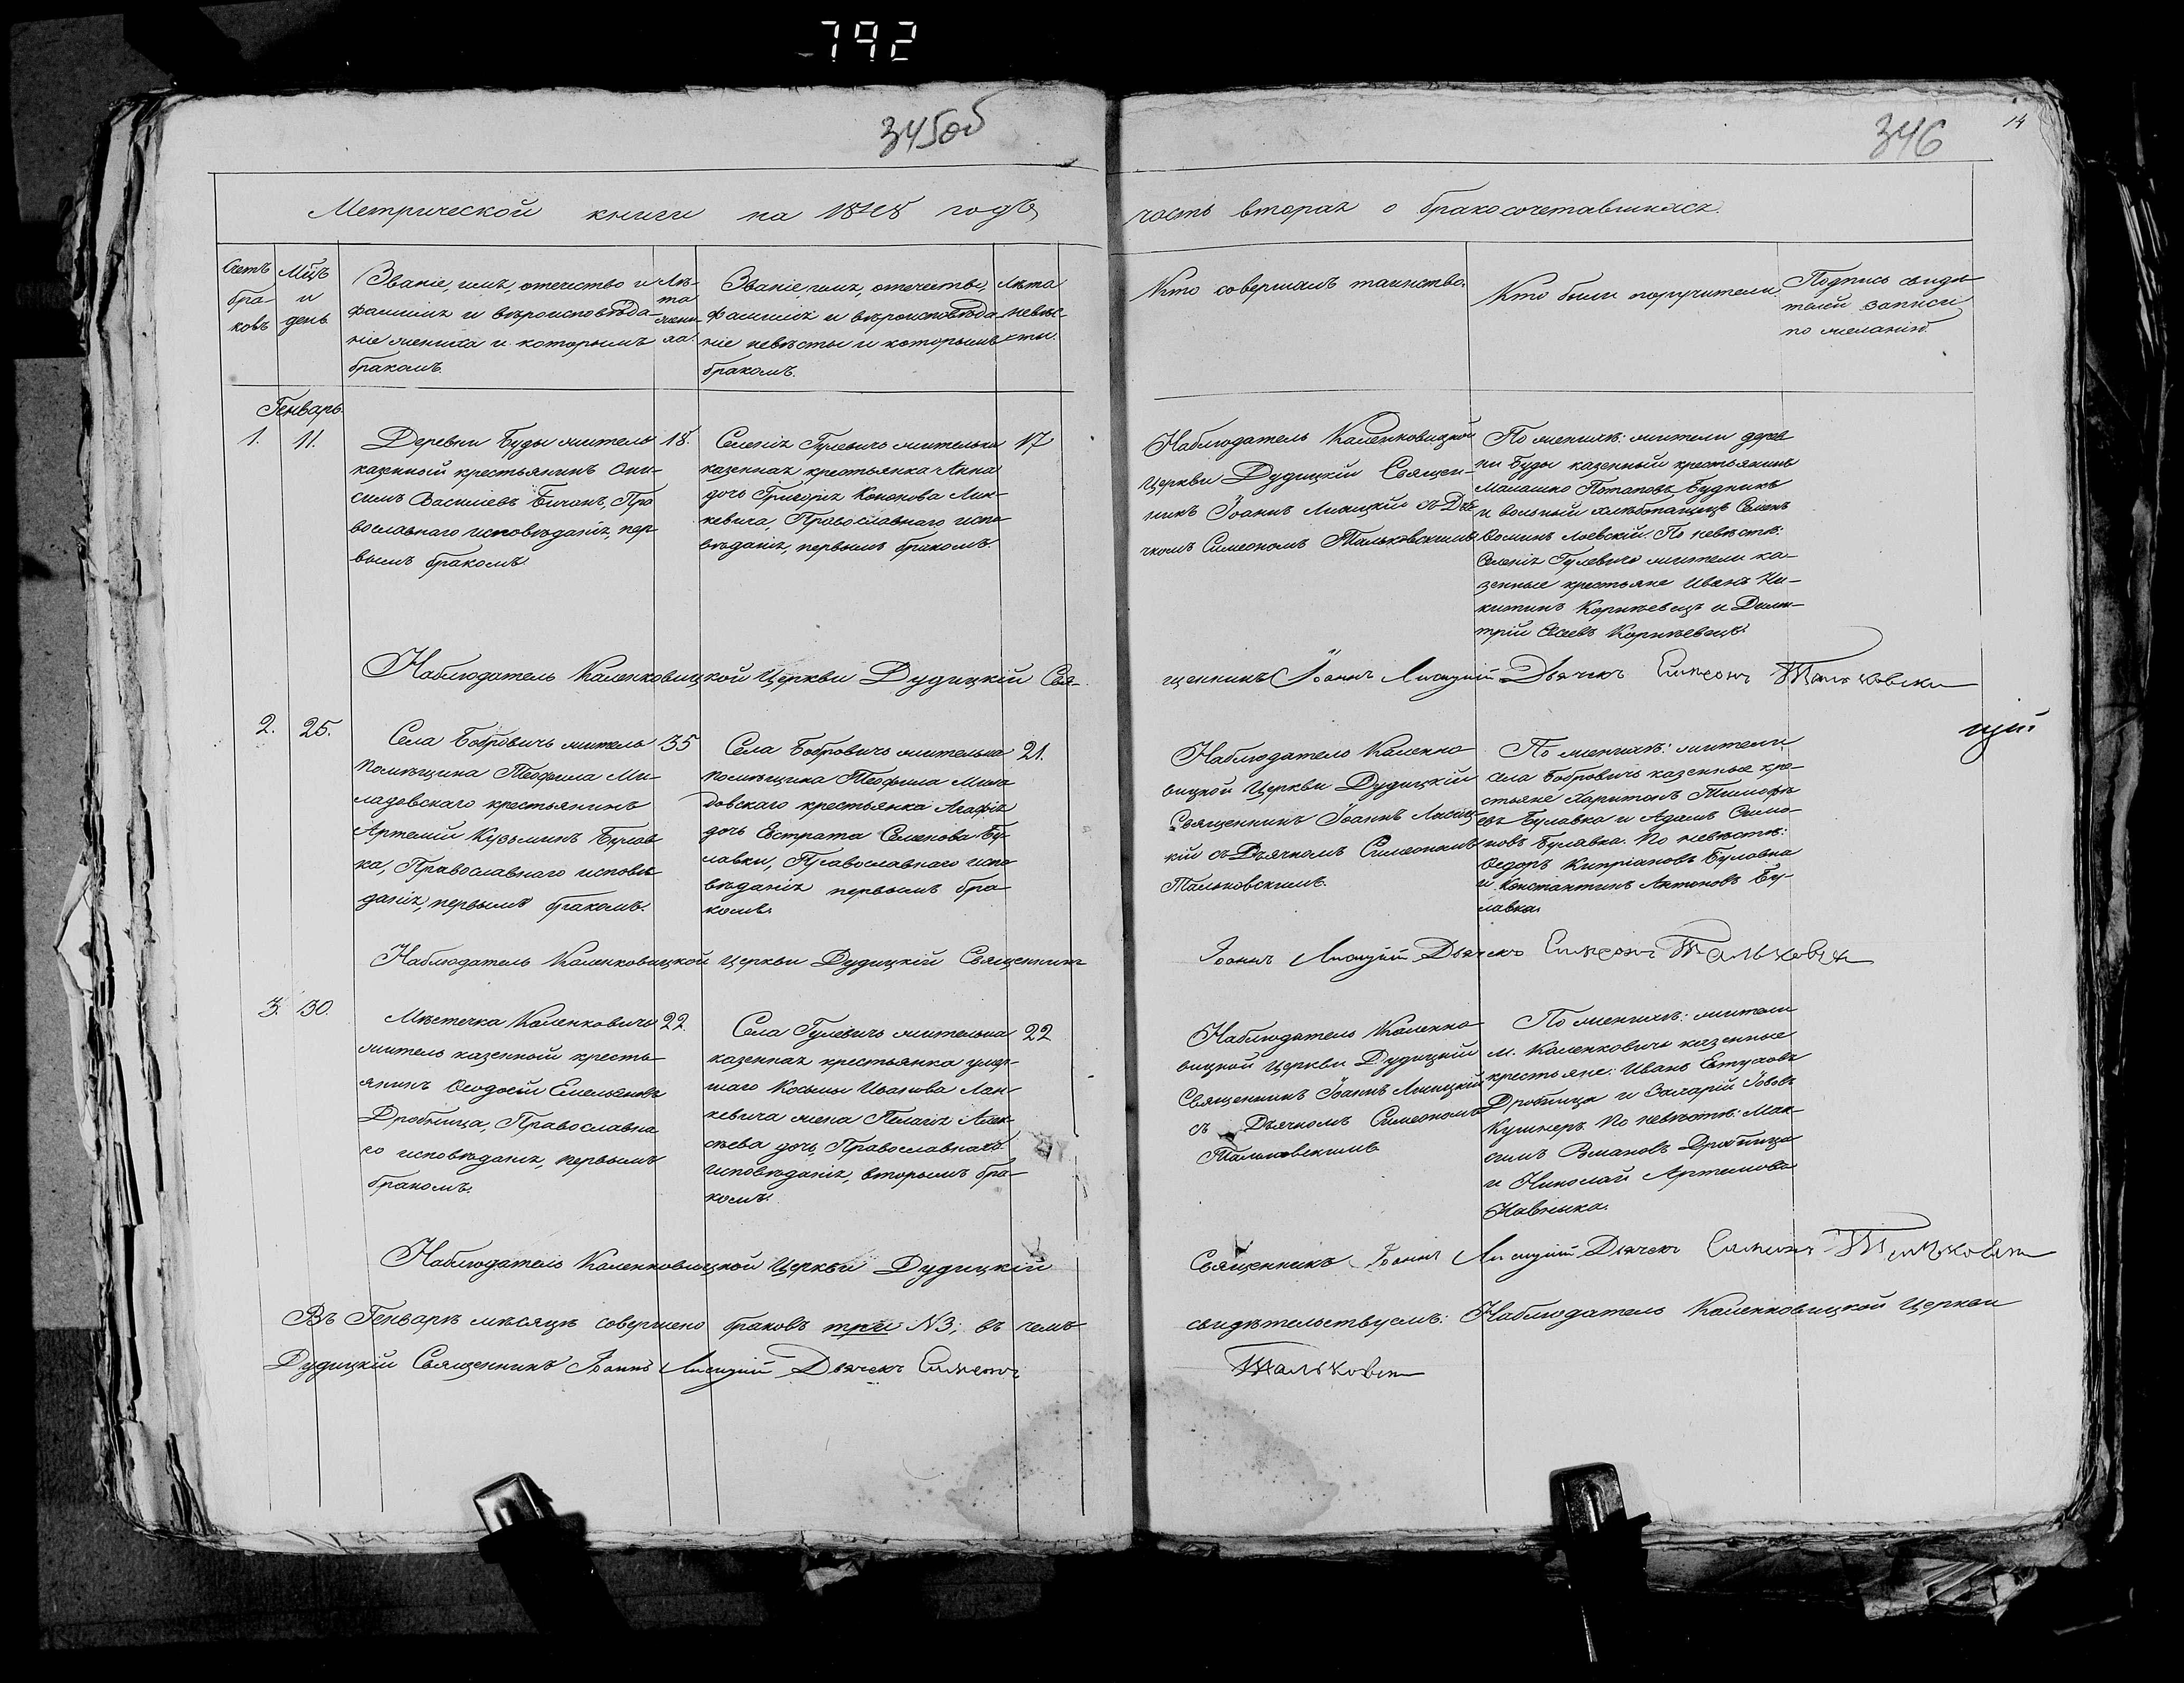 792
345об
346
14
Метрической книги на 1848 годъ
часть вторая о бракосочетавшихся.
Счетъ браковъ
Мцъ и день
Званіе, имя, отечество и
фамилія и вѣроисповѣда-
ніе жениха и которымъ
бракомъ.
Лѣ-
та
жени-
ха.
Званіе, имя, отечество,
фамилія и вѣроисповѣда-
ніе невѣсты и которымъ
бракомъ.
Лѣта
невѣс-
ты.
Кто совершалъ таинство.
Кто были поручители.
Подпись свидѣ-
телей записи
по желанію.
Генварь.
1.
11.
Деревни Буды житель
казенный крестьянинъ Они-
симъ Василіевъ Бичанъ, Пра
вославнаго исповѣданія, пер-
вымъ бракомъ.
18.
Селенія Гулевичъ жителька
казенная крестьянка Анна
дочь Григорія Кононова Лин-
кевича, Православнаго испо-
вѣданія, первымъ бракомъ.
17
Наблюдатель Каленковицкой
Церкви Дудицкій Священ-
никъ Іоаннъ Лисицкій съ Дья-
чкомъ Симеономъ Тальковскимъ
По женихѣ: жители дерев
ни Буды казенный крестьянинъ
Малашко Потаповъ Будникъ
и вольный хлѣбопашецъ Семенъ
Фоминъ Лоевскій. По невѣстѣ:
Селенія Гулевичъ жители ка-
зенные крестьяне Иванъ Ни-
китинъ Корнѣевецъ и Дими-
трій Корнѣевецъ.
Наблюдатель Каленковицкой Церкви Дудицкій Свя-
щенникъ Іоаннъ Лисицкій Дьячекъ Симеонъ Тальковски
2.
25.
Села Бобровичъ житель
помѣщика Теофила Ми-
ладовскаго крестьянинъ
Артемій Кузьминъ Булав
ка, Православнаго исповѣ
данія, первымъ бракомъ.
35
Села Бобровичъ жителька
помѣщика Теофила Мила
довскаго крестьянка Агафія
дочь Евстрата Семенова Бу-
лавки, Православнаго испо
вѣданія первымъ бра-
комъ.
21.
Наблюдатель Каленко
вицкой Церкви Дудицкій
Священникъ Іоаннъ Лисиц
кій съ Дьячкомъ Симеономъ
Тальковскимъ.
По женихѣ: жители
села Бобровичъ казенные кре-
стьяне Харитонъ Тимофе
евъ Булавка и Адамъ Симо-
новъ Булавка. По невѣстѣ:
Федоръ Кипріановъ Булавка
и Константинъ Антоновъ Бу-
лавка.
цкій
Наблюдатель Каленковицкой Церкви Дудицкій Священникъ
Іоаннъ Лисицкій Дьячекъ Симеонъ Тальковски
3.
30.
Мѣстечка Каленковичъ
житель казенный кресть-
янинъ Феодосій Емельяновъ
Дробница, Православна
го исповѣданія, первымъ
бракомъ.
22.
Села Гулевичъ жителька
казенная крестьянка умер-
шаго Косьмы Иванова Лин-
кевича жена Пелагія Алек-
сѣева дочь, Православнаго
исповѣданія, вторымъ бра-
комъ.
22
Наблюдатель Каленко
вицкой Церкви Дудицкій
Священникъ Іоаннъ Лисицкій
съ Дьячкомъ Симеономъ
Тальковскимъ
По женихѣ: жители
м. Каленковичъ казенные
крестьяне: Иванъ Евтуховъ
Дробница и Захарій Іововъ
Кушнеръ. По невѣстѣ: Мак-
симъ Романовъ Дробница
и Николай Артемовъ
Навныка.
Наблюдатель Каленковицкой Церкви Дудицкій
Священникъ Іоаннъ Лисицкій Дьячекъ Симеонъ Тальковски
Въ Генварѣ мѣсяцѣ совершено браковъ три №3; въ чемъ
свидѣтельствуемъ: Наблюдатель Каленковицкой Церкви
Дудицкій Священникъ Іоаннъ Лисицкій Дьячекъ Симеонъ
Тальковски